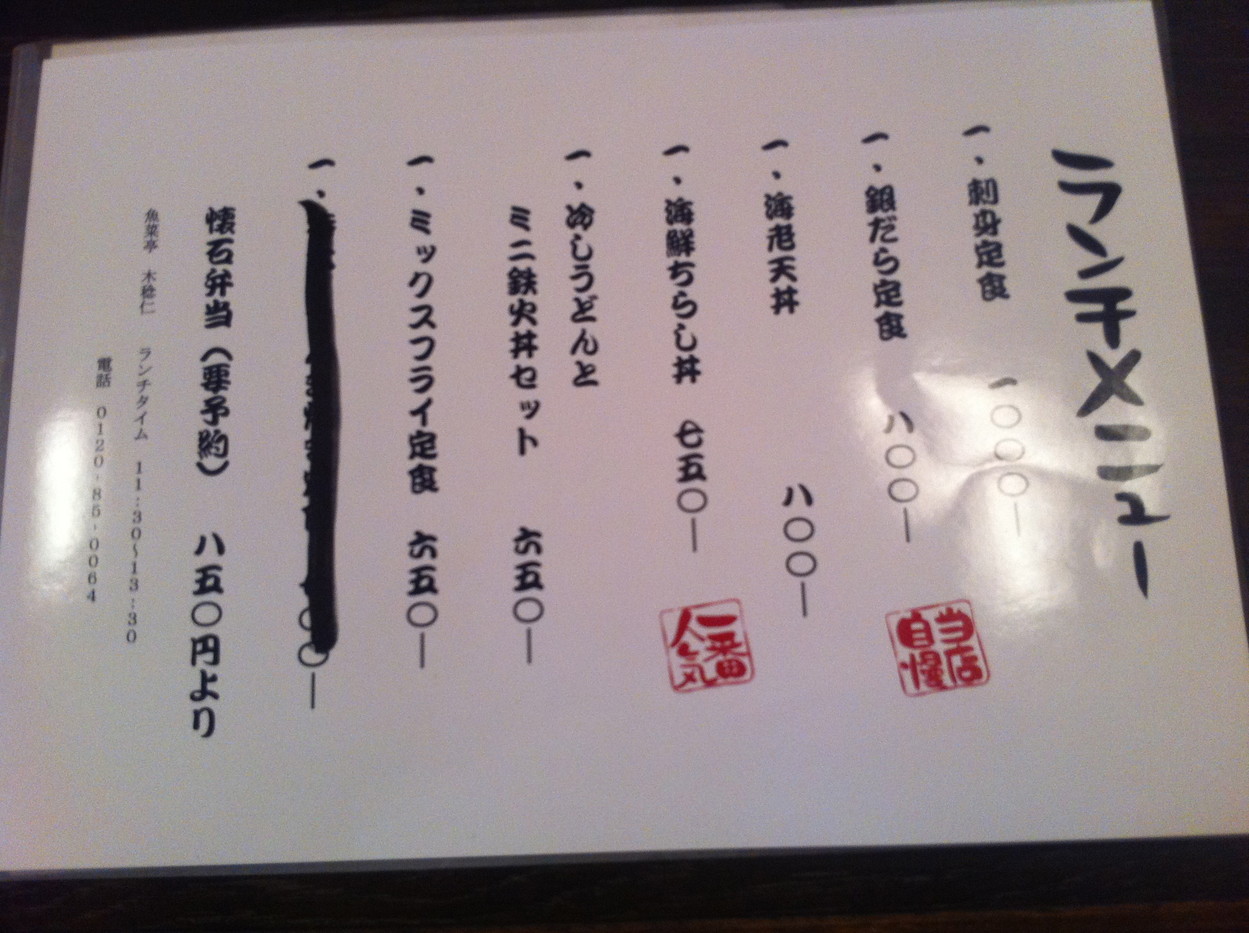 ランチメニュー
一、刺身定食 一〇〇〇―
一、銀だら定食 八〇〇―
当店自慢
一、海老天丼 八〇〇―
一、海鮮ちらし丼 七五〇―
一番人気
一、冷しうどんと
ミニ鉄火丼セット 六五〇―
一、ミックスフライ定食 六五〇―
一、
懐石弁当(要予約) 八五〇円より
魚菜亭 木稔仁 ランチタイム 11:30~13:30
電話 0120-85-0064